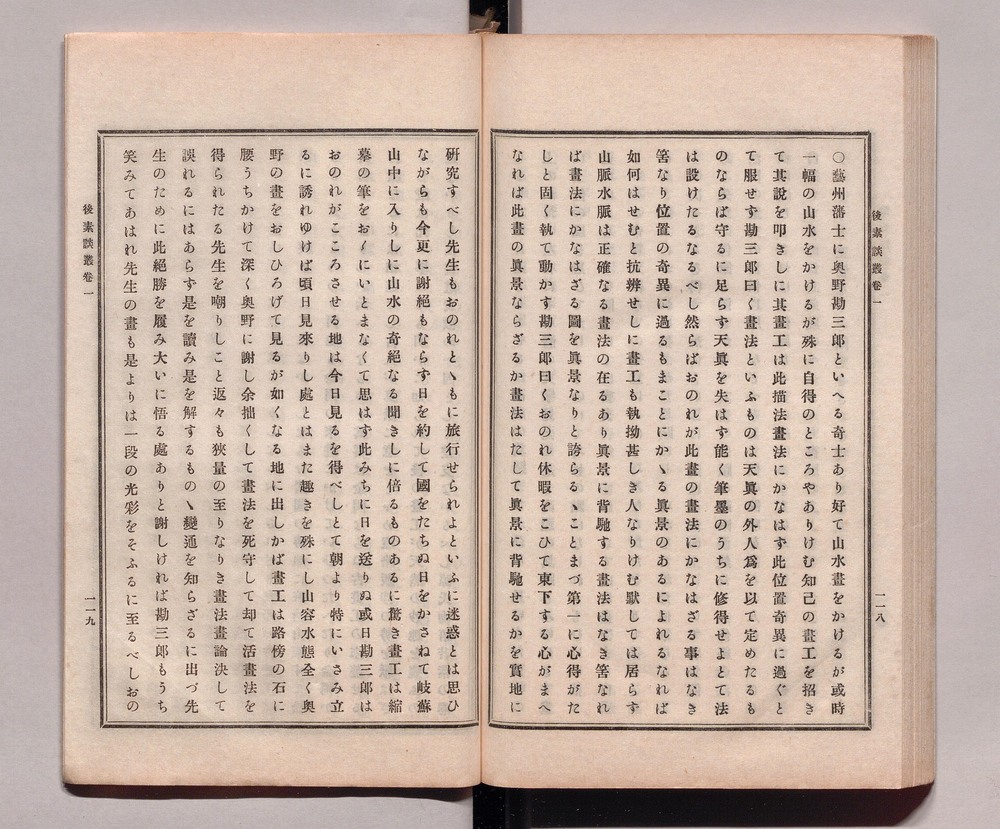 後素談叢卷一
一一八
〇藝州藩士に奥野勘三郎といへる奇士あり好て山水畫をかけるが或時
一幅の山水をかけるが殊に自得のところやありけむ知己の畫工を招き
て其說を叩きしに其畫工は此描法畫法にかなはず此位置奇異に過ぐと
て服せず勘三郎曰く畫法といふものは天眞の外人爲を以て定めたるも
のならば守るに足らず天眞を失はず能く筆墨のうちに修得せよとて法
は設けたるなるべし然らばおのれが此畫の畫法にかなはざる事はなき
筈なり位置の奇異に過るもまことにかゝる眞景のあるによれるなれば
如何はせむと抗辨せしに畫工も執拗甚しき人なりけむ默しては居らず
山脈水脈は正確なる畫法の在るあり眞景に背馳する畫法はなき筈なれ
ば畫法にかなはざる圖を眞景なりと誇らるゝことまづ第一に心得がた
しと固く執て動かず勘三郎曰くおのれ休暇をこひて東下する心がまへ
なれば此畫の眞景ならざるか畫法はたして眞景に背馳せるかを實地に
硏究すべし先生もおのれとゝもに旅行せられよといふに迷惑とは思ひ
ながらも今更に謝絕もならず日を約して國をたちぬ日をかさねて岐蘇
山中に入りしに山水の奇絕なる聞きしに倍るものあるに驚き畫工は縮
摹の筆をお〳〵にいとまなくて思はず此みちに日を送りぬ或日勘三郎は
おのれがこころさせる地は今日見るを得べしとて朝より特にいさみ立
るに誘れゆけば頃日見來りし處とはまた趣きを殊にし山容水態全く奥
野の畫をおしひろげて見るが如くなる地に出しかば畫工は路傍の石に
腰うちかけて深く奥野に謝し余拙くして畫法を死守して却て活畫法を
得られたる先生を嘲りしこと返々も狹量の至りなりき畫法畫論決して
誤れるにはあらず是を讀み是を解するものゝ變通を知らざるに出づ先
生のために此絕勝を履み大いに悟る處ありと謝しければ勘三郎もうち
笑みてあはれ先生の畫も是よりは一段の光彩をそふるに至るべしおの
後素談叢卷一
一一九